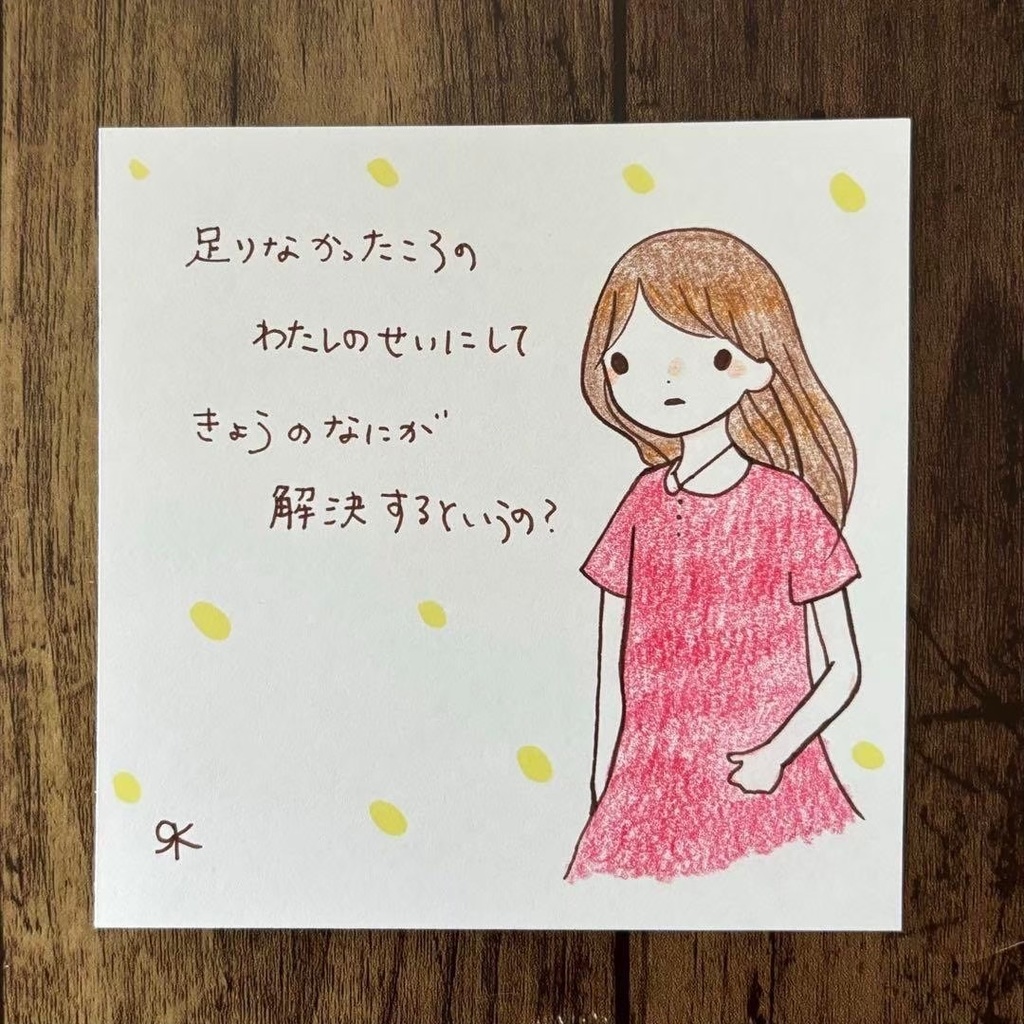 足りなかったころの
わたしのせいにして
きょうのなにが
解決するというの?